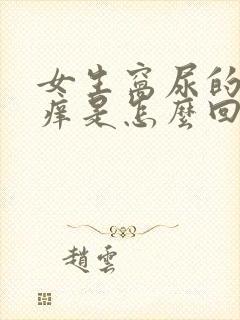 女生窩尿的
癢是怎麼回
趙雲